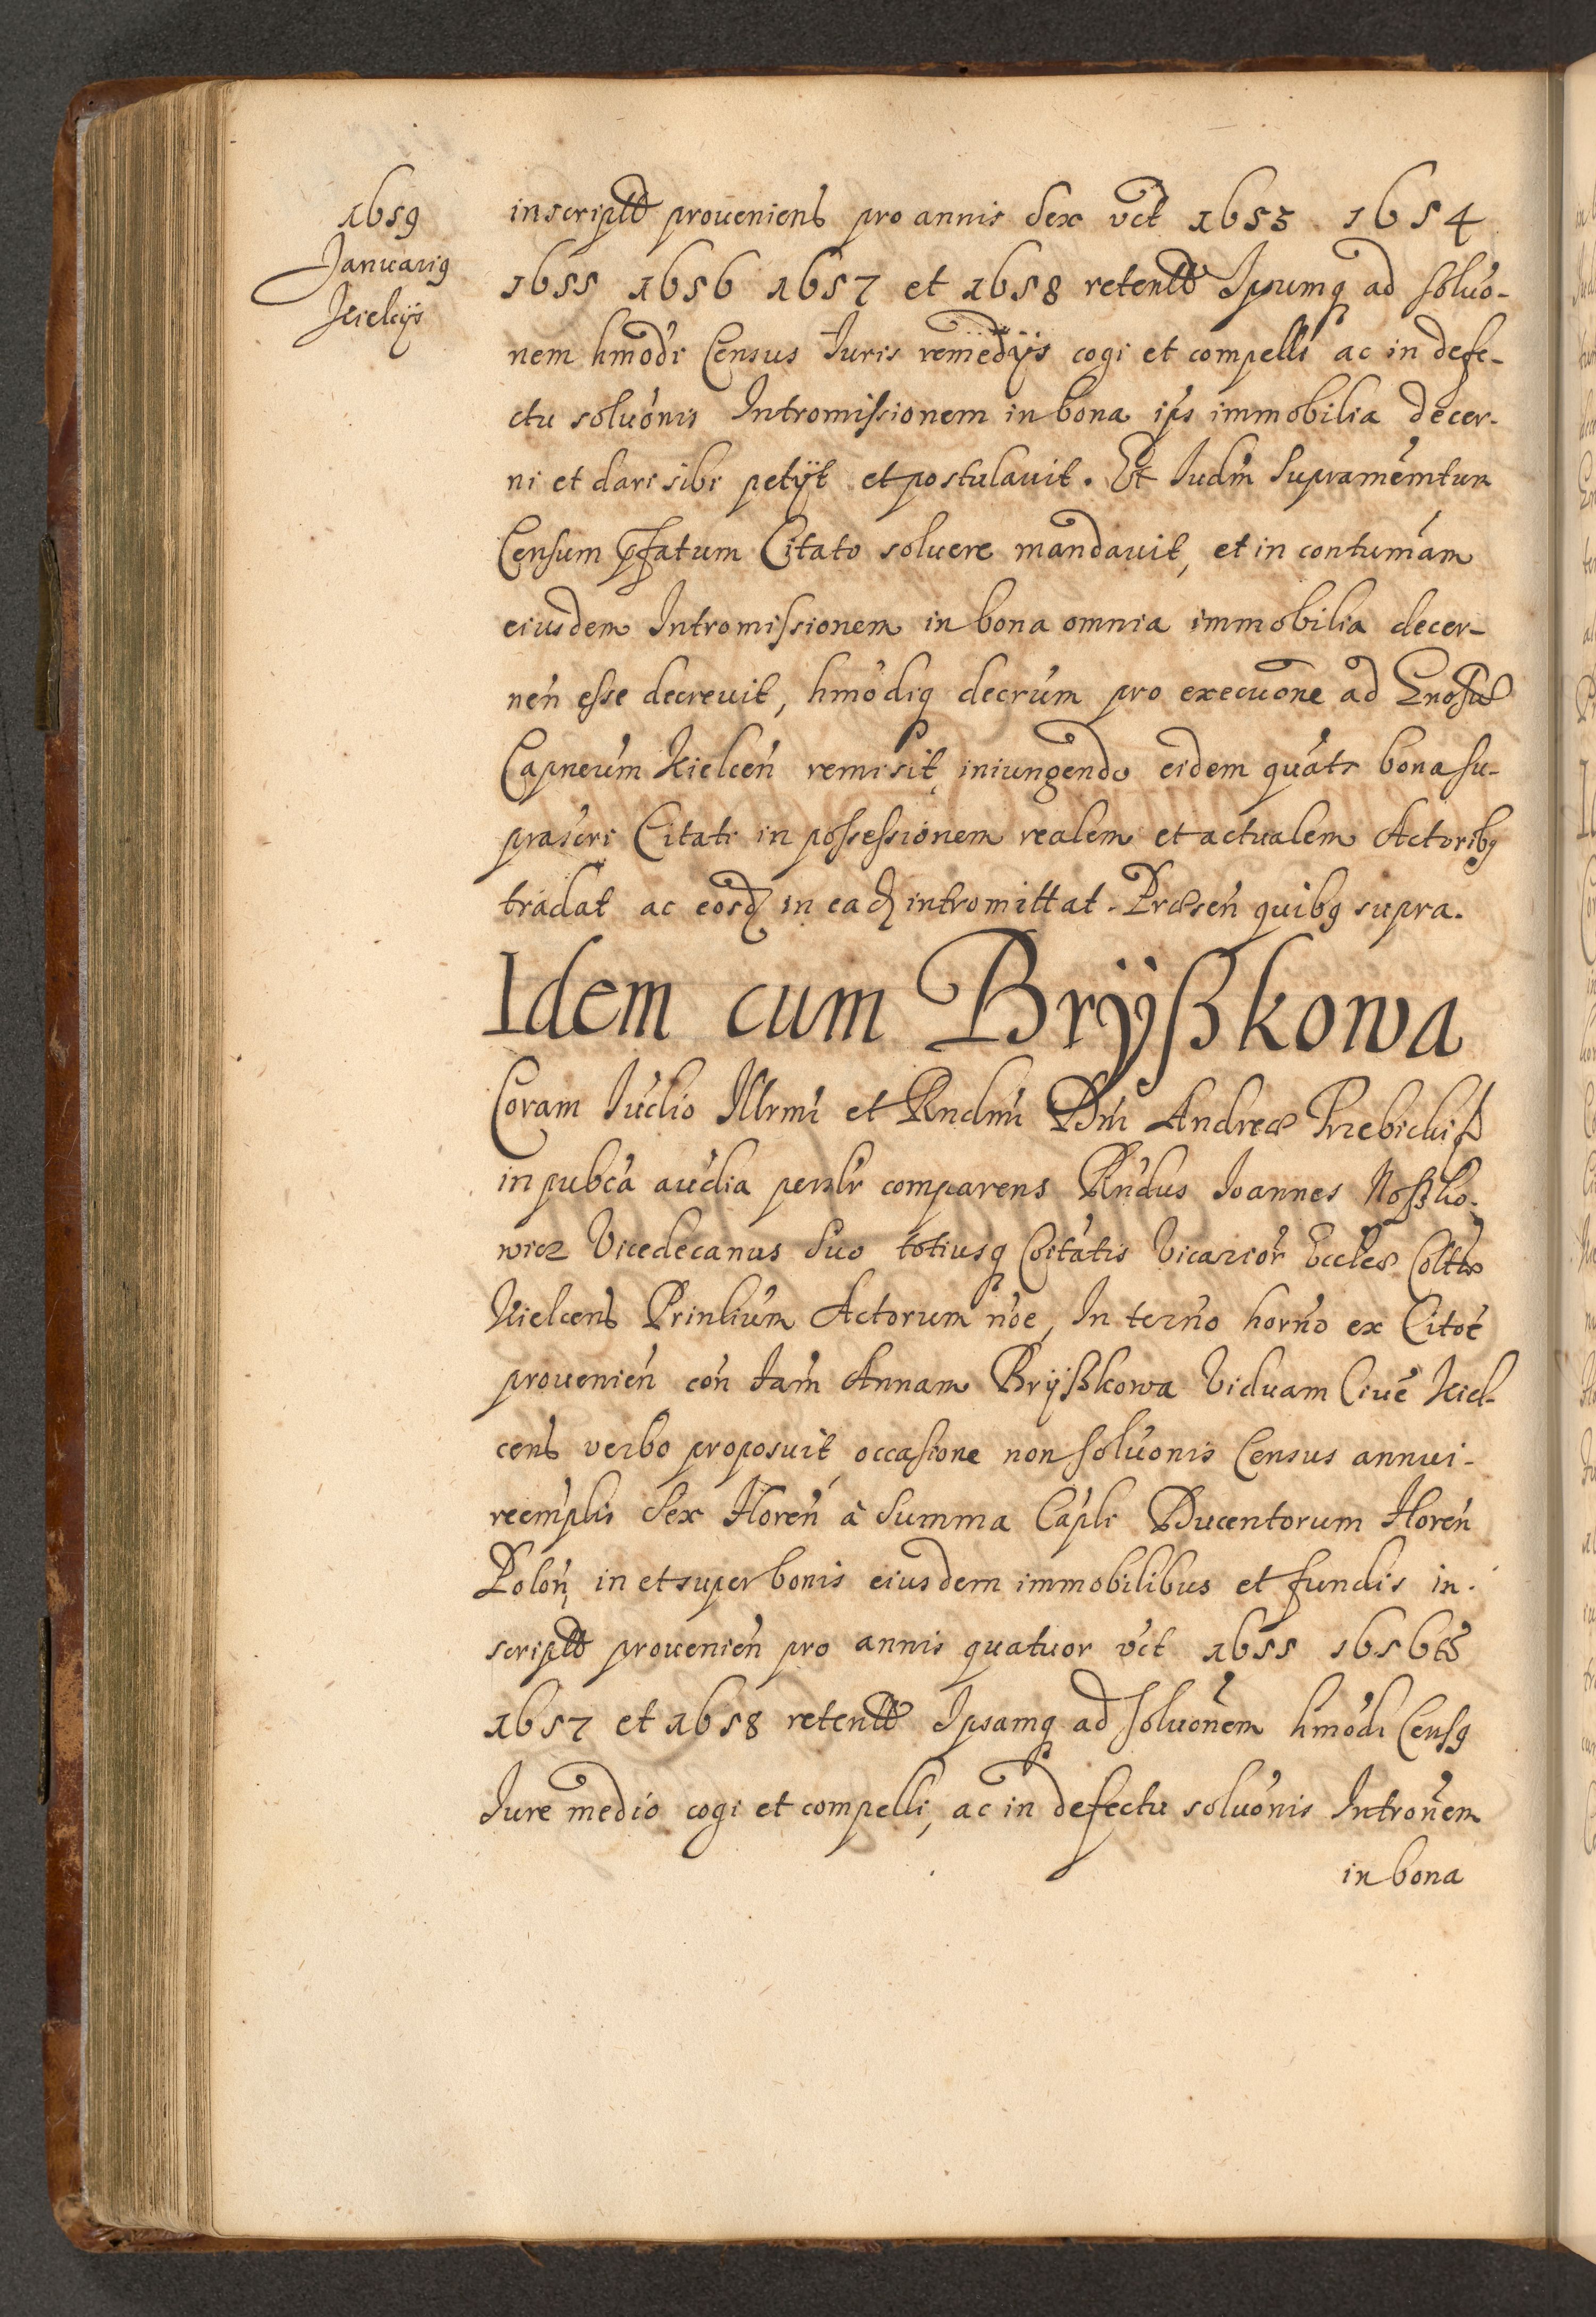 1659
Januarij
Kielcÿs
inscriptae proueniens pro annis Sex vct 1653 1654
1655 1656 1657 et 1658 retentae Ipsumq ad soluo-
nem hmodi Census Iuris remedÿs cogi et compelli ac in defe-
ctu soluonis Intromissionem in bona ips immobilia decer-
ni et dari sibi petÿt et postulauit. Et Iudm Supramemtum
Censum pfatum Citato soluere mandauit, et in contumam
eiusdem Intromissionem in bona omnia immobilia decer-
nen esse decreuit, hmodiq decrum pro execuone ad
Capneum Kielcen remisit, iniungendo eidem quatr bona su-
prascri Citati in possessionem realem et actualem Actoribq
tradat ac eosd in ead intromittat. Praesen quibq supra.
Idem cum Brÿßkowa
Coram Iudio Illrmi et Rndmi Dni Andreae Trzebicki
in pubca audia persnlr comparens Rndus Ioannes Noßko-
wicz Vicedecanus Suo totiusq Coitatis Vicarior Eccles Colltae
Kielcens Prinlium Actorum noe, In termo horno ex Citoe
prouenien con fam Annam Brÿßkowa Viduam Ciue Kiel-
cens verbo proposuit occasione non soluonis Census annui-
reemplis Sex floren à Summa Caplr Ducentorum floren
Polon, in et super bonis eiusdem immobilibus et fundis in-
scriptae prouenien pro annis quatuor vct 1655 1656
1657 et 1658 retentae Ipsamq ad soluonem hmodi Censq
Iure medio cogi et compelli, ac in defectu soluonis Intronem
in bona